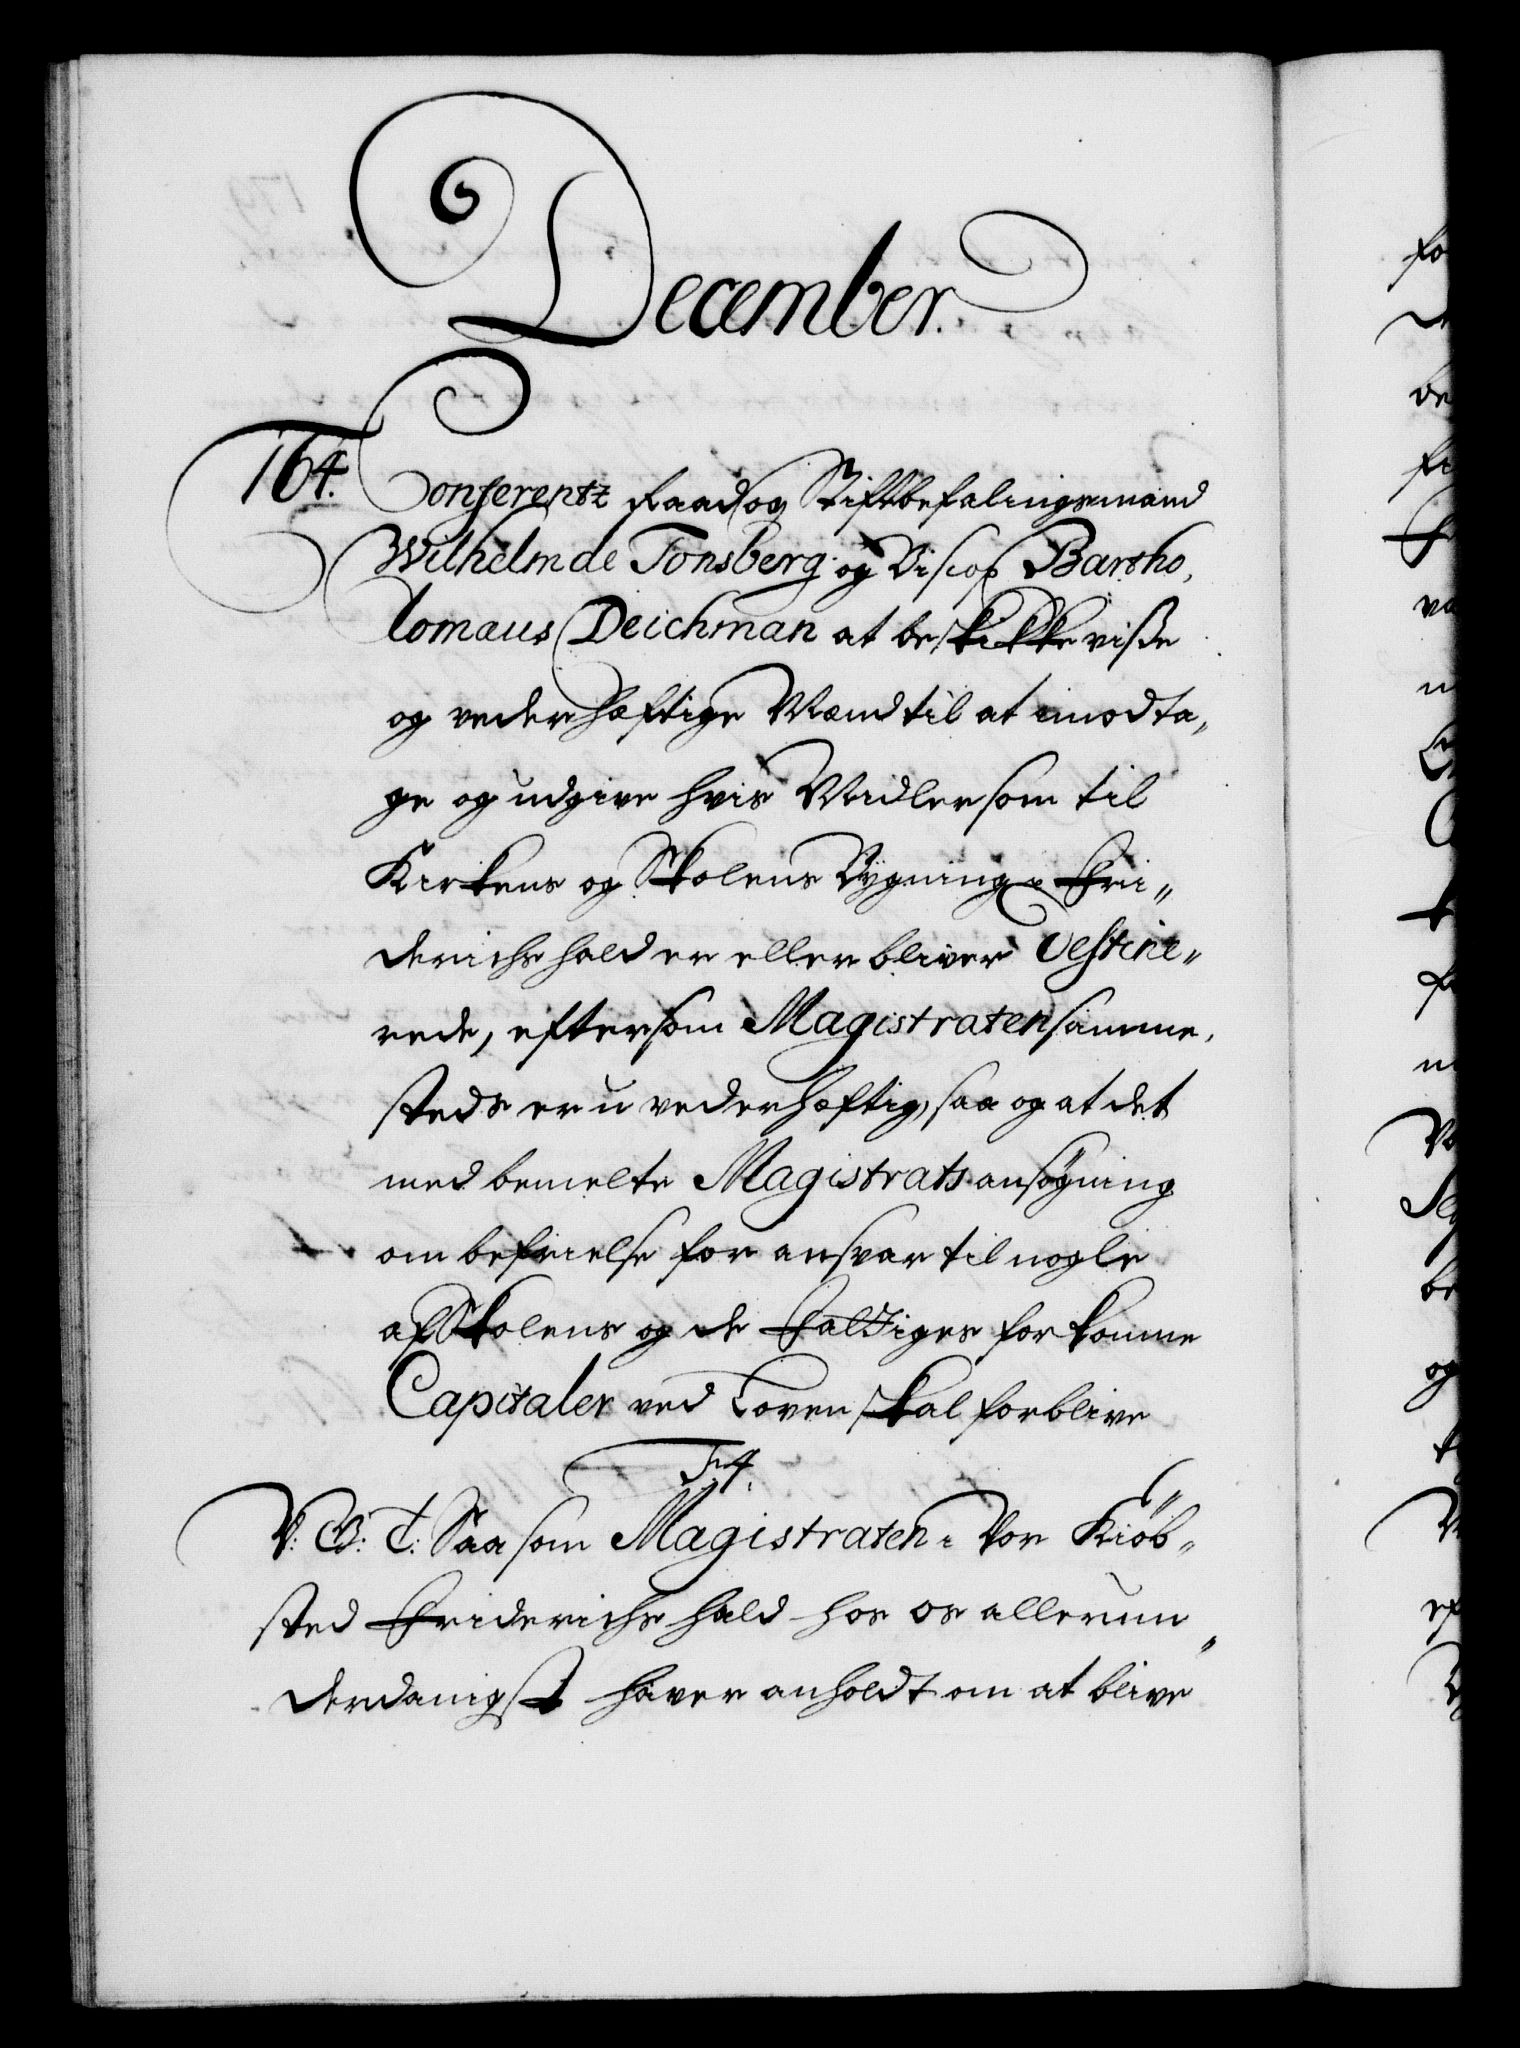 December.
164. Conferentz Raad og Stiftbefalingsmand
Wilhelm de Tonsberg og Biscop Bartho,
lomæus Deichman at beskikke visse
og vederhæftige Mænd til at imodta„
ge og udgive hvis Midler som til
Kirkens og Skolens Bygning i Fri„
derichshald er eller bliver destine„
rede, eftersom Magistraten samme,
steds er u vederhæftig, saa og at det
med bemelte Magistrats ansøgning
om befrielse for ansvar til nogle
af Skolens og de Fattiges forkomne
Capitaler ved Loven skal forblive
F. 4.
V: G: T: Saasom Magistraten i Vor Kiöb„
sted Friderichshald hos os allerun„
derdanigst haver anholdt om at blive